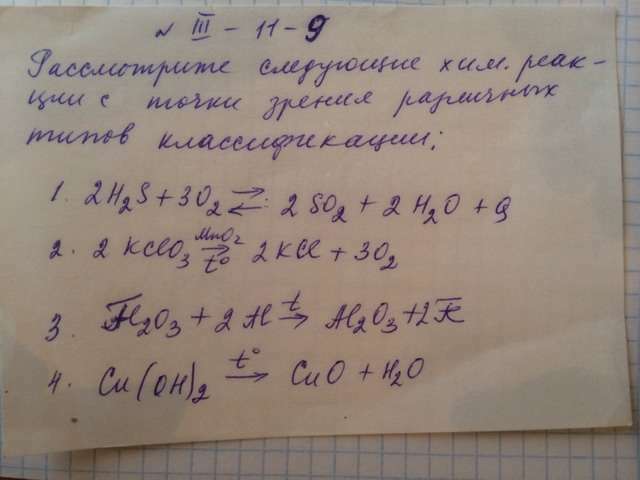 № III - 11 - 9
Рассмотрите следующие хим. реак-
ции с точки зрения различных
типов классификации:
1. 2H₂S + 3O₂ ⇄ 2SO₂ + 2H₂O + Q
2. 2KClO₃ MnO₂→t° 2KCl + 3O₂
3. Fe₂O₃ + 2Al t→ Al₂O₃ + 2Fe
4. Cu(OH)₂ t°→ CuO + H₂O